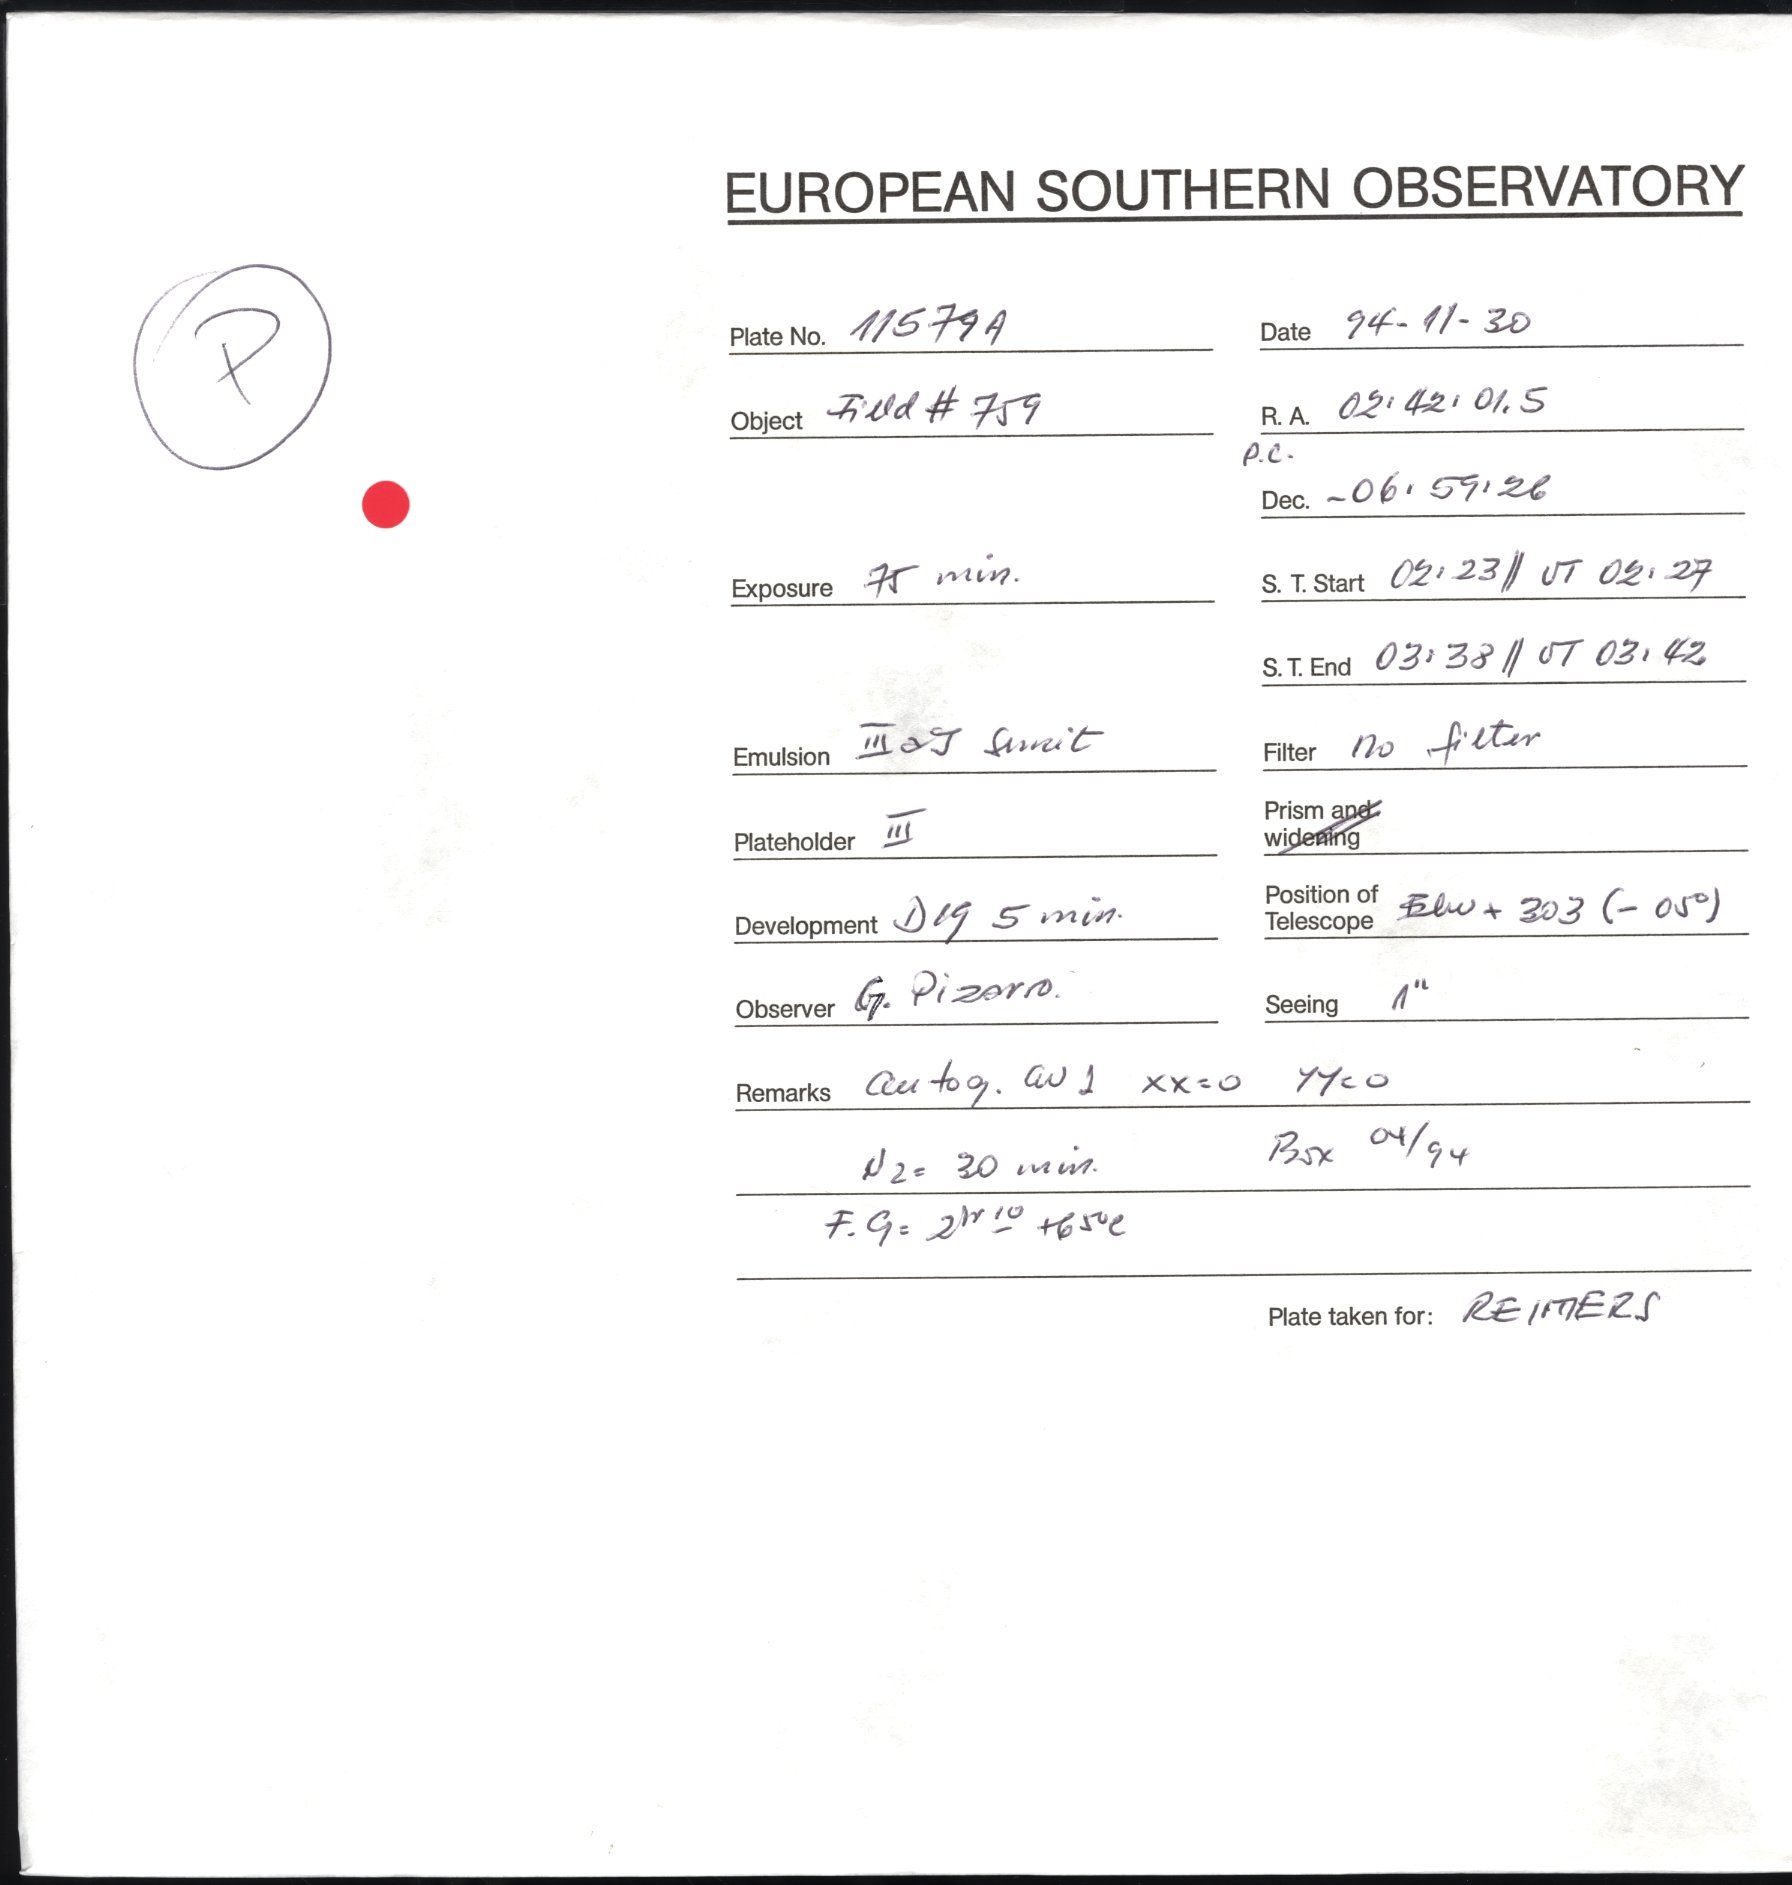 EUROPEAN SOUTHERN OBSERVATORY
P
Plate No. 11579A
Date 94-11-30
Object Field # 759
R. A. 02:42:01.5
P.C.
Dec. -06:59:26
Exposure 75 min.
S. T. Start 02:23 // UT 02:27
S. T. End 03:38 // UT 03:42
Emulsion III aJ
Filter no filter
Plateholder III
Prism and
widening
Development D19 5 min.
Position of
Telescope + 303 (-05°)
Observer G. Pizarro.
Seeing 1"
Remarks autog. xx=0 YY=0
N2= 30 min. Box 04/94
F.G= 2hr 10 +65°C
Plate taken for: REIMERS